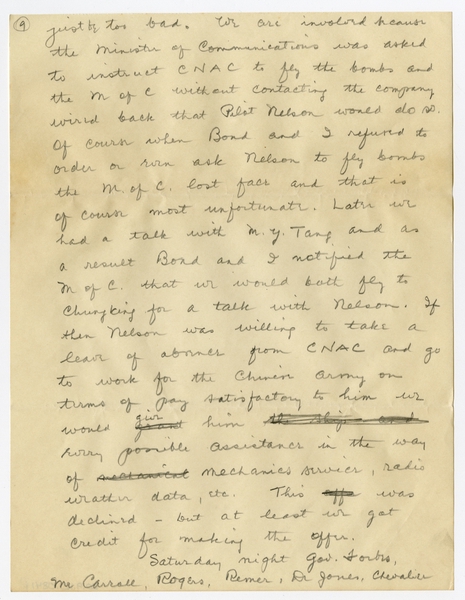 9
just be too bad. We are involved because
the Ministry of Communications was asked
to instruct CNAC to fly the bombs and
the M of C without contacting the company
wired back that Pilot Nelson would do so.
Of course when Bond and I refused to
order or even ask Nelson to fly bombs
the M. of C. lost face and that is
of course most unfortunate. Later we
had a talk with M. Y. Tang and as
a result Bond and I notified the
M of C. that we would both fly to
Chungking for a talk with Nelson. If
then Nelson was willing to take a
leave of absence from CNAC and go
to work for the Chinese Army on
terms of pay satisfactory to him we
would grant give him the ship and
every possible assistance in the way
of mechanical mechanics service, radio
weather data, etc. This off was
declined – but at least we got
credit for making the offer.
Saturday night Gov. Forbes,
Mr Carrall, Rogers, Remer, Dr Jones, Chevalier